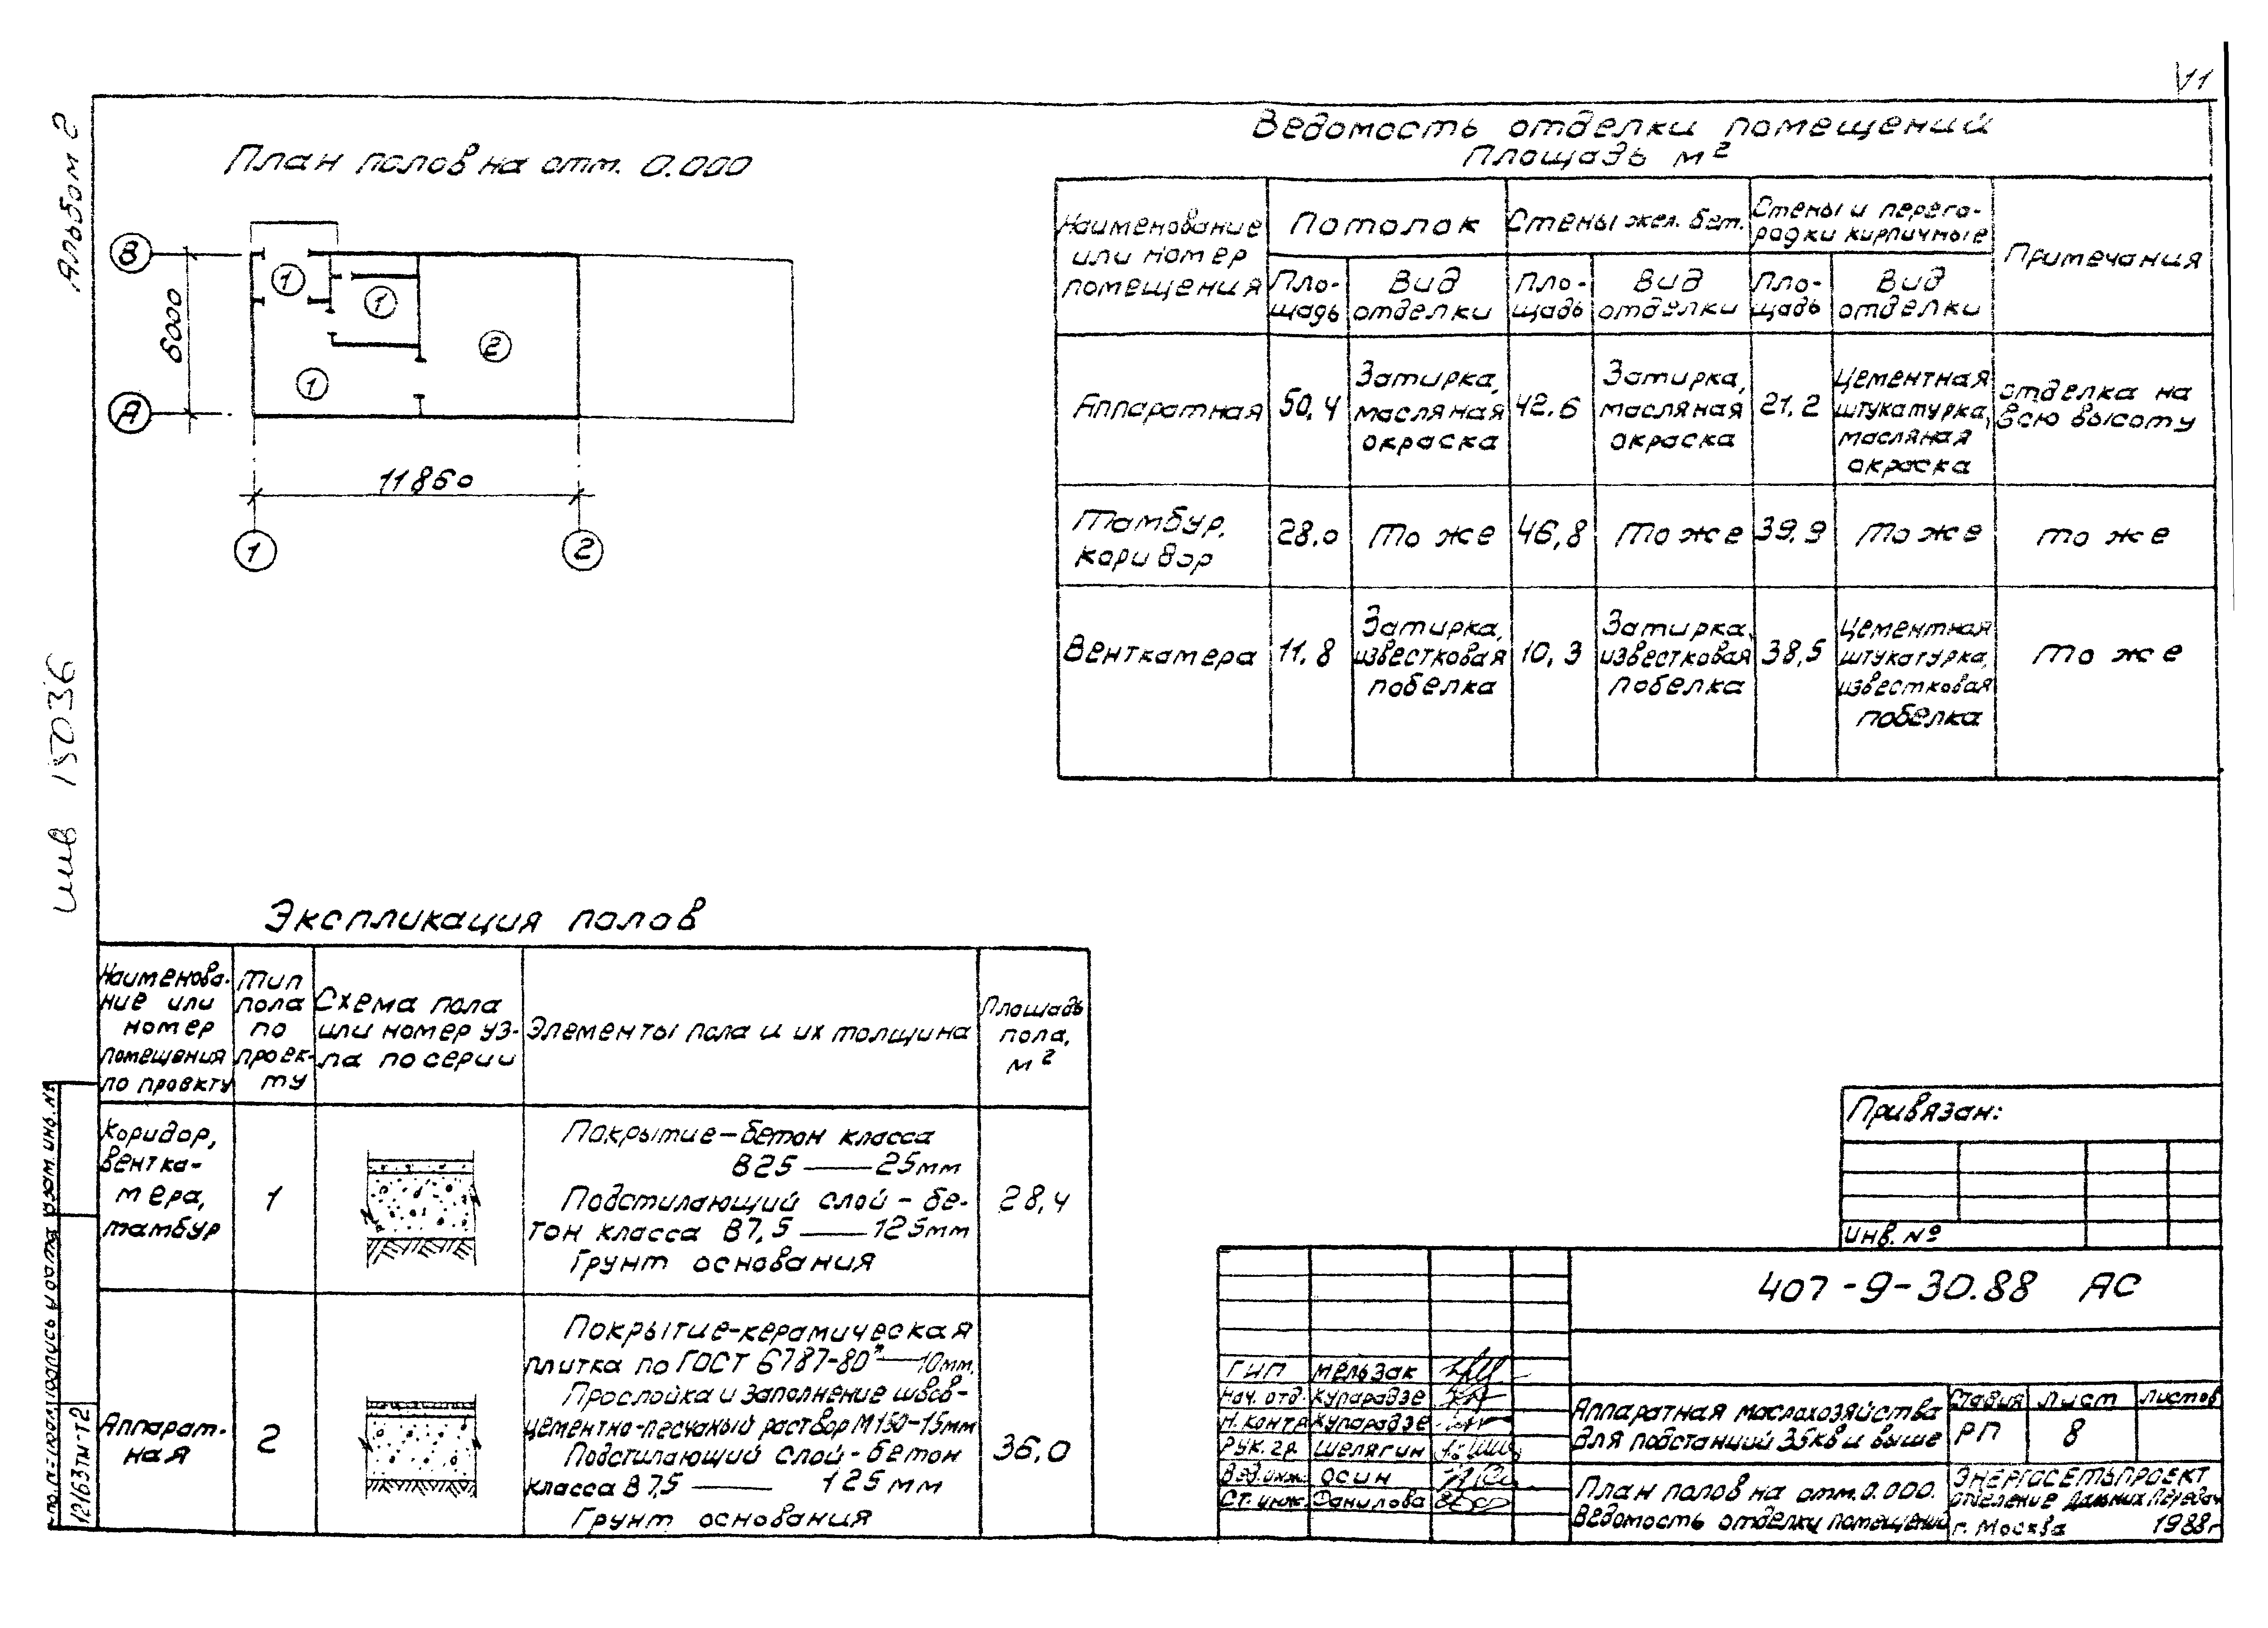 11
Альбом 2
инв 15036
План полов на отм. 0.000
В
А
6000
11860
1
2
1
1
1
2
Ведомость отделки помещений
Площадь м2
Наименование
или номер
помещения
Потолок
Стены жел. бет.
Стены и перего-
родки кирпичные
Примечания
Пло-
щадь
Вид
отделки
Пло-
щадь
Вид
отделки
Пло-
щадь
Вид
отделки
Аппаратная
50,4
Затирка,
масляная
окраска
42.6
Затирка,
масляная
окраска
21,2
Цементная
штукатурка,
масляная
окраска
отделка на
всю высоту
Тамбур,
коридор
28.0
То же
46,8
То же
39,9
То же
то же
Венткамера
11,8
Затирка,
известковая
побелка
10,3
Затирка,
известковая
побелка
38,5
Цементная
штукатурка,
известковая
побелка
то же
Экспликация полов
Наименова-
ние или
номер
помещения
по проекту
Тип
пола
по
проек-
ту
Схема пола
или номер уз-
ла по серии
Элементы пола и их толщина
Площадь
пола,
м2
Коридор,
вентка-
мера,
тамбур
1
Покрытие-бетон класса
В25 — 25мм
Подстилающий слой - бе-
тон класса В7,5 — 125мм
Грунт основания
28,4
Аппарат-
ная
2
Покрытие-керамическая
плитка по ГОСТ 6787-80* — 10мм.
Прослойка и заполнение швов-
цементно-песчаный раствор М150-15мм
Подстилающий слой-бетон
класса В7,5 — 125мм
Грунт основания
36,0
Взам. инв. №
Подпись и дата
12163тм-т2
Привязан:
Инв. №
407-9-30.88 АС
ГИП Мельзак
Нач. отд. Купарадзе
Н. контр Купарадзе
Рук. гр. Шелягин
Вед. инж. Осин
Ст. инж. Данилова
Аппаратная маслохозяйства
для подстанций 35кв и выше
Стадия Лист Листов
РП 8
План полов на отм. 0.000.
Ведомость отделки помещений
ЭНЕРГОСЕТЬПРОЕКТ
отделение дальних передач
г. Москва 1988г